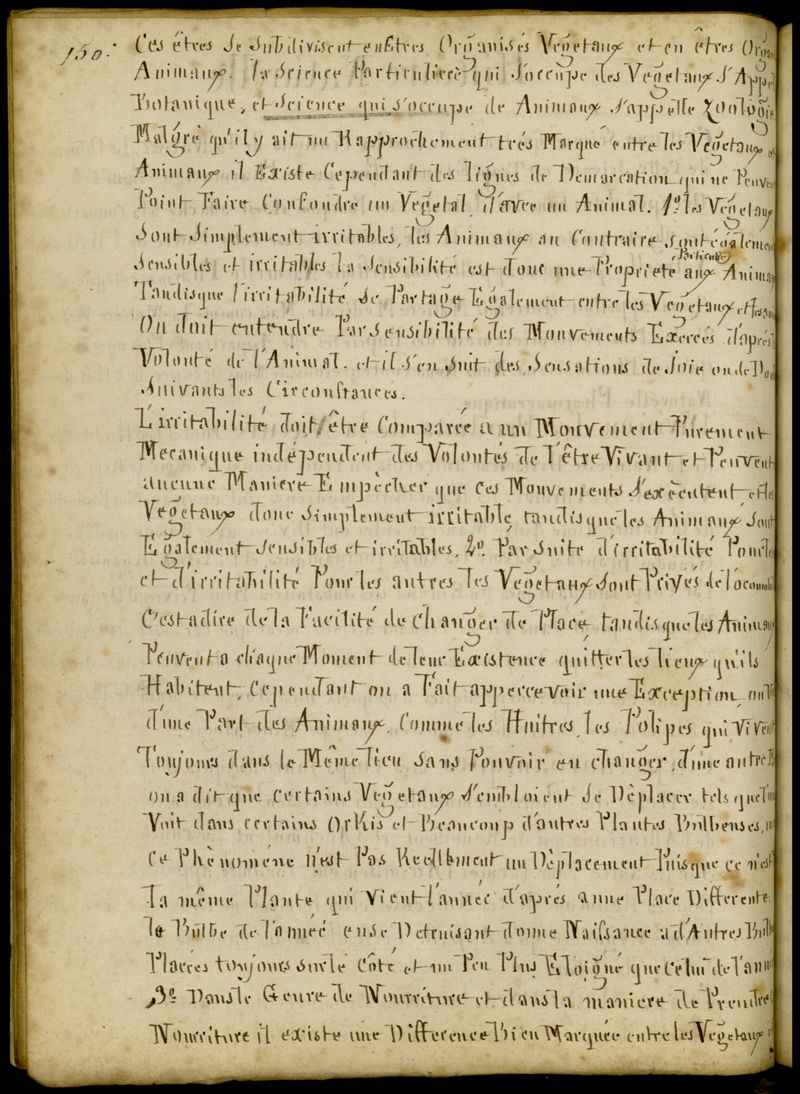 150.
Ces êtres se subdivisent en Etres Organisés Vegetaux et en êtres Orga
Animaux. La Science Particulière qui s'occupe des Vegetaux S'App
Botanique, et Science qui s'occupe de Animaux s'appelle Zoologie
Malgrè qu'il y ait un Rapprochement trés Marqué entre les Vegetaux et
Animaux il Existe Cependant des lignes de Demarcation qui ne Peuve
Point Faire Confondre un Vegetal d'avec un Animal. 1º. les Vegetaux
Sont Simplement irritables, les Animaux au Contraire sont égalemen
Sensibles et irritables la Sensibilité est donc une Proprieté Particuliere aux Animau
Tandisque l'irritabilité se Partage Également entre les Vegetaux et les
On doit entendre Par Sensibilité des Mouvements Exercés d'aprés
Volonté de l'Animal. et il s'en suit des Sensations de Joie ou de
Suivants les Circonstances.
L'irritabilité doit être Comparée a un Mouvement Purement
Mecanique indépendent des Volontés de l'être Vivant et Peuvent
aucune Maniere Empècher que ces Mouvements s'exècutent et les
Vegetaux donc Simplement irritable, tandisque les Animaux sont
Également sensibles et irritables, 2º. Par Suite d'irritabilité Pour les
et d'irritabilité Pour les autres les Vegetaux sont Privés de locomobi
C'estadire de la Facilité de Changer de Place, tandisque les Animau
Peuvent a chaque Moment de leur Existence quitter les lieux qu'ils
Habitent, Cependant on a Fait appercevoir une Exception, on
d'une Part des Animaux, Comme les Huitres, les Polipes qui Vivent
Toujours dans le Même lieu sans Pouvoir en changer, d'une autre P
on a dit que Certains Vegetaux sembloient se Dèplacer tels que l'on
Voit dans certains Orkis et Beaucoup d'autres Plantes Bulbeuses,
Ce Phènomène n'est Pas Reellement un Dèplacement Puisque ce n'est
la même Plante qui Vient l'année d'aprés a une Place Differente
le Bulbe de l'année en se Detruisant donne Naissance a d'Autres Bulb
Placés toujours sur le Côté et un Peu Plus Eloigné que Celui de l'anné
3º. Dans le Genre de Nourriture et dans la maniere de Prendre
Nourriture il existe une Difference Bien Marquée entre les Vegetaux